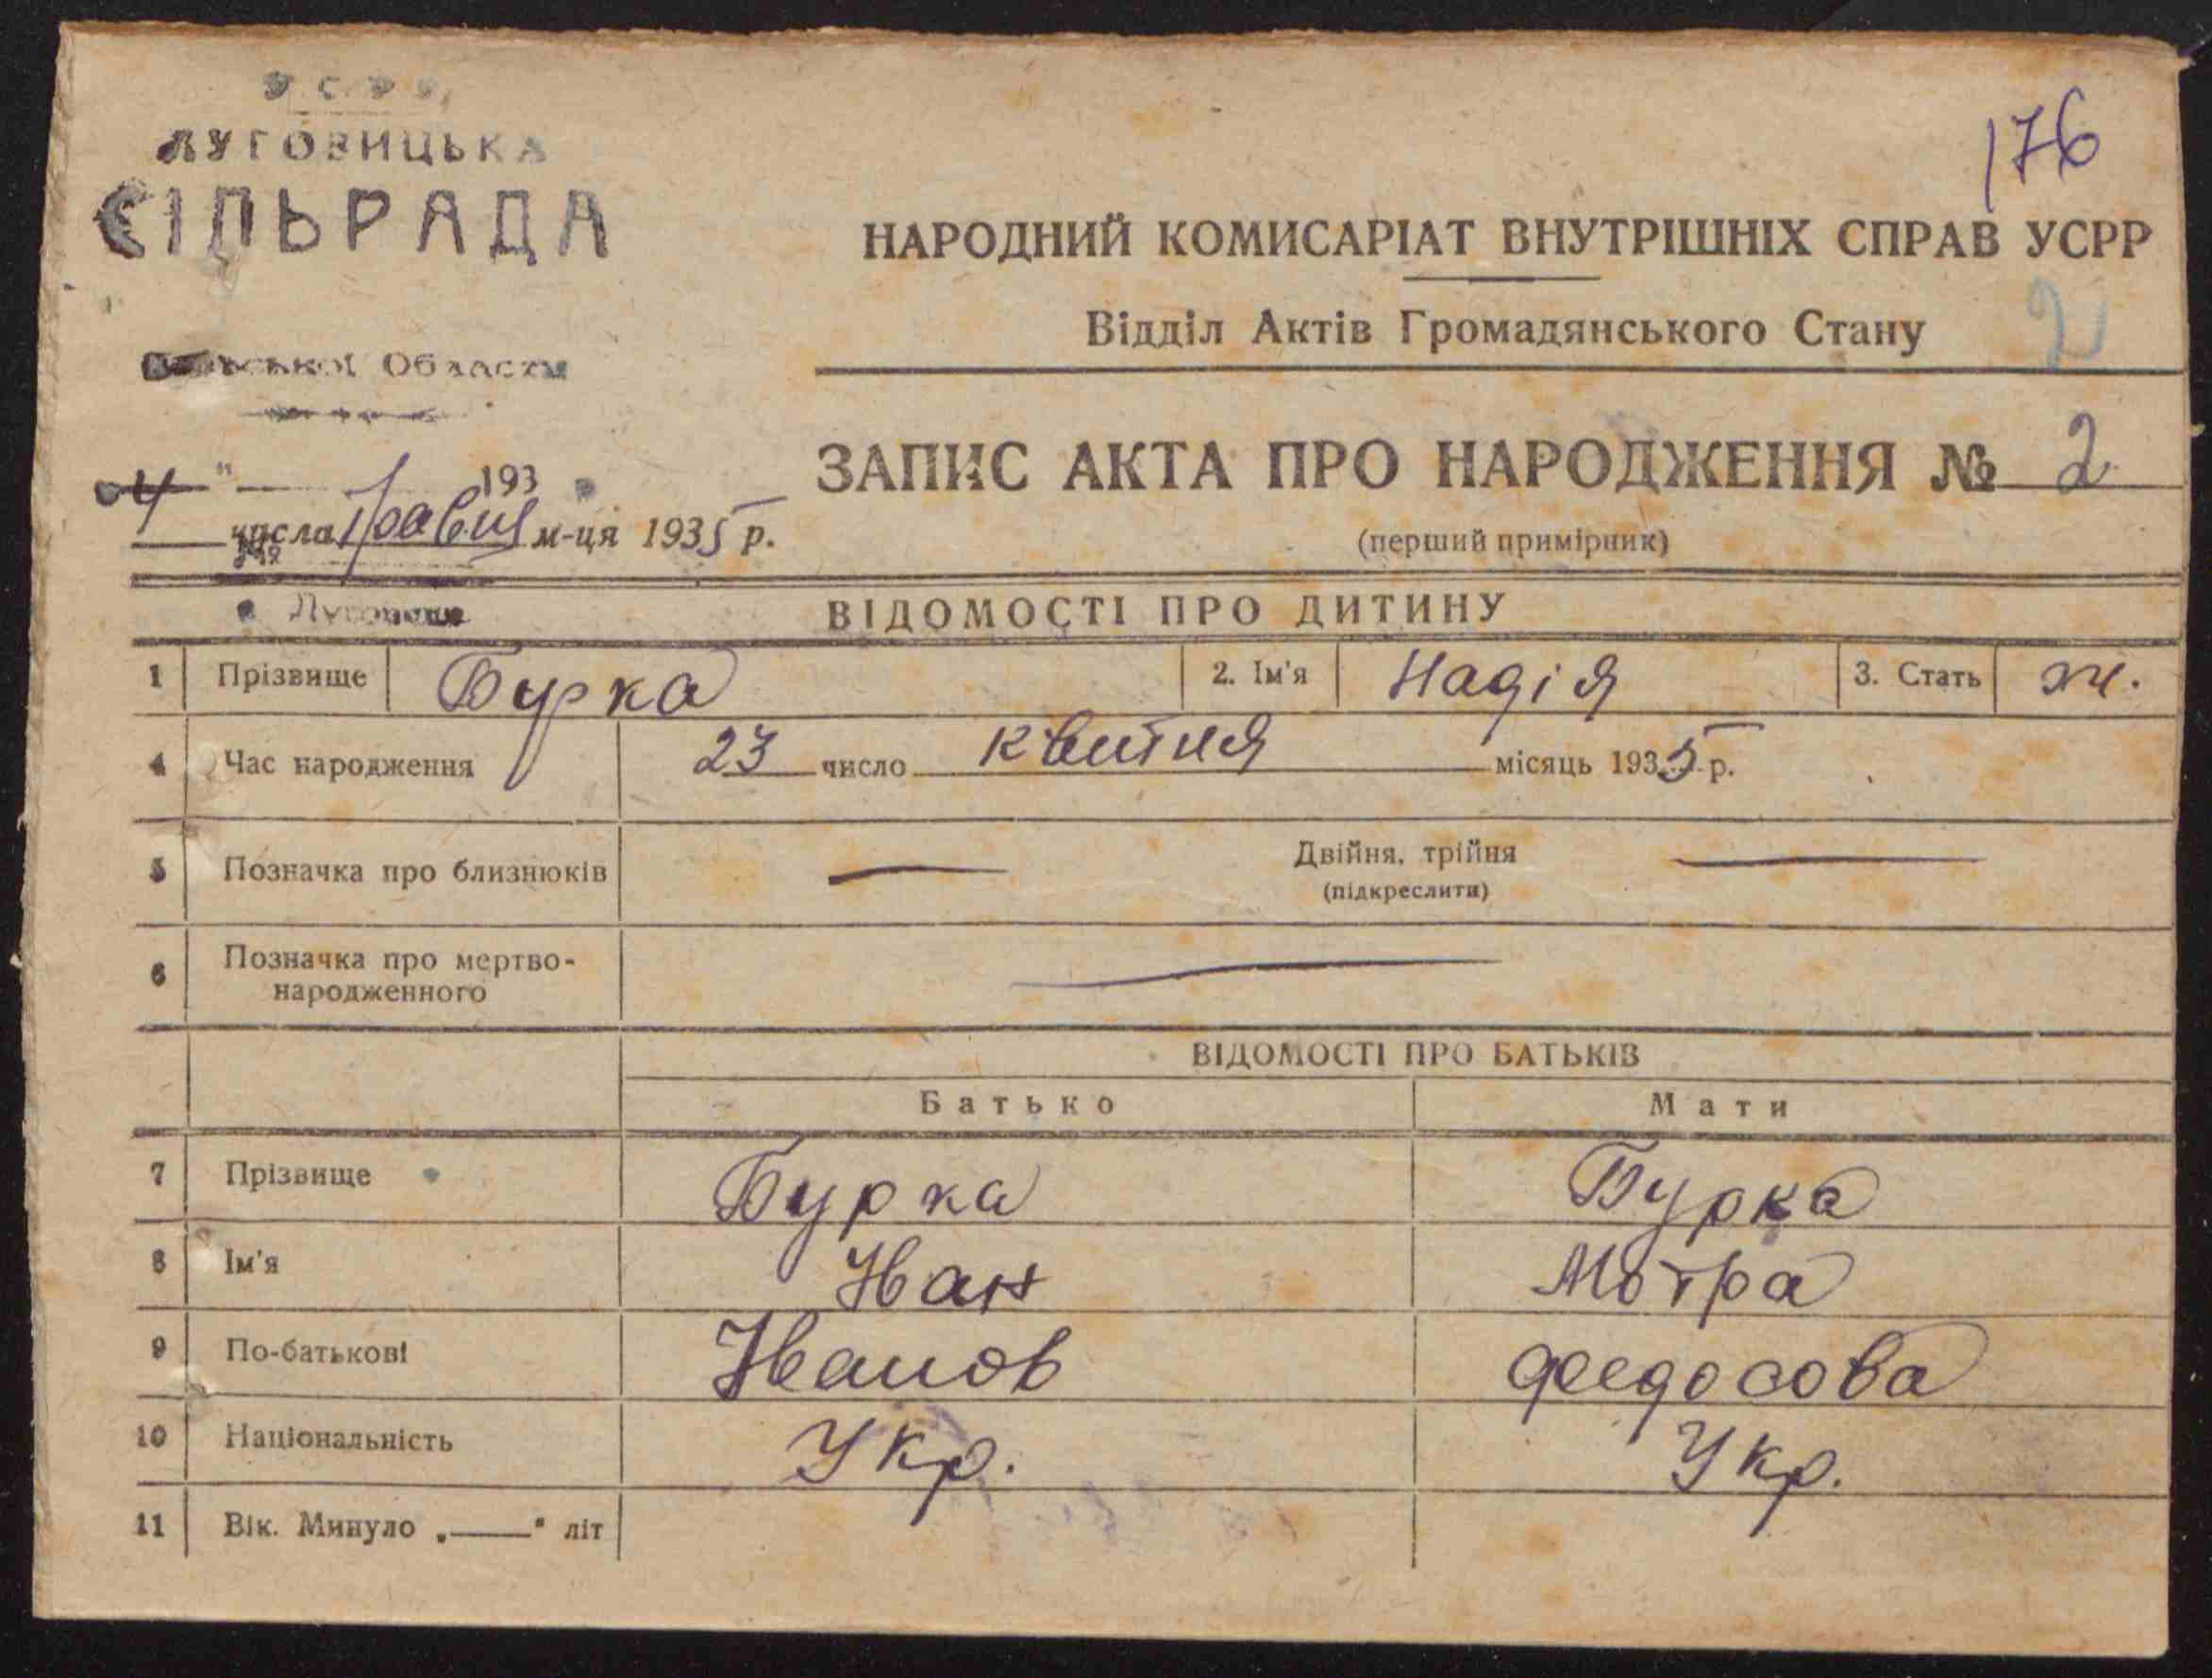 УСРР
ЛУГОВИЦЬКА
СІЛЬРАДА
Области
176
НАРОДНИЙ КОМИСАРІАТ ВНУТРІШНІХ СПРАВ УСРР
Відділ Актів Громадянського Стану
2
ЗАПИС АКТА ПРО НАРОДЖЕННЯ № 2
(перший примірник)
" 193
4 числа Травня м-ця 1935 р.
№
ВІДОМОСТІ ПРО ДИТИНУ
1 Прізвище Бурка 2. Ім'я Надія 3. Стать ж.
4 Час народження 23 число квитня місяць 1935 р.
5 Позначка про близнюків — Двійня, трійня —
(підкреслити)
6 Позначка про мертво-
народженного —
ВІДОМОСТІ ПРО БАТЬКІВ
Батько Мати
7 Прізвище Бурка Бурка
8 Ім'я Иван Мотра
9 По-батькові Иванов Феедосова
10 Національність Укр. Укр.
11 Вік. Минуло „——" літ